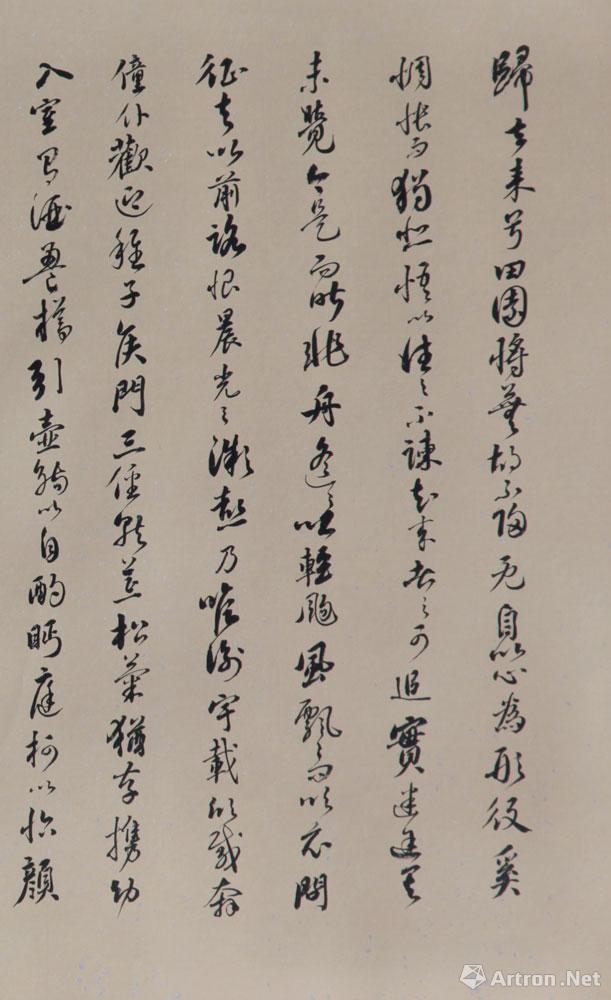 歸去来兮田園將蕪胡不歸既自以心為形役奚
惆悵而獨悲悟以往之不諫知来者之可追實迷途其
未覺今是而昨非舟遙々以輕颺風飄々而吹衣問
征夫以前路恨晨光之微熹乃瞻衡宇載欣載奔
僮仆歡迎稚子候門三徑就荒松菊猶存携幼
入室有酒盈樽引壺觴以自酌眄庭柯以怡顏
Artron.Net